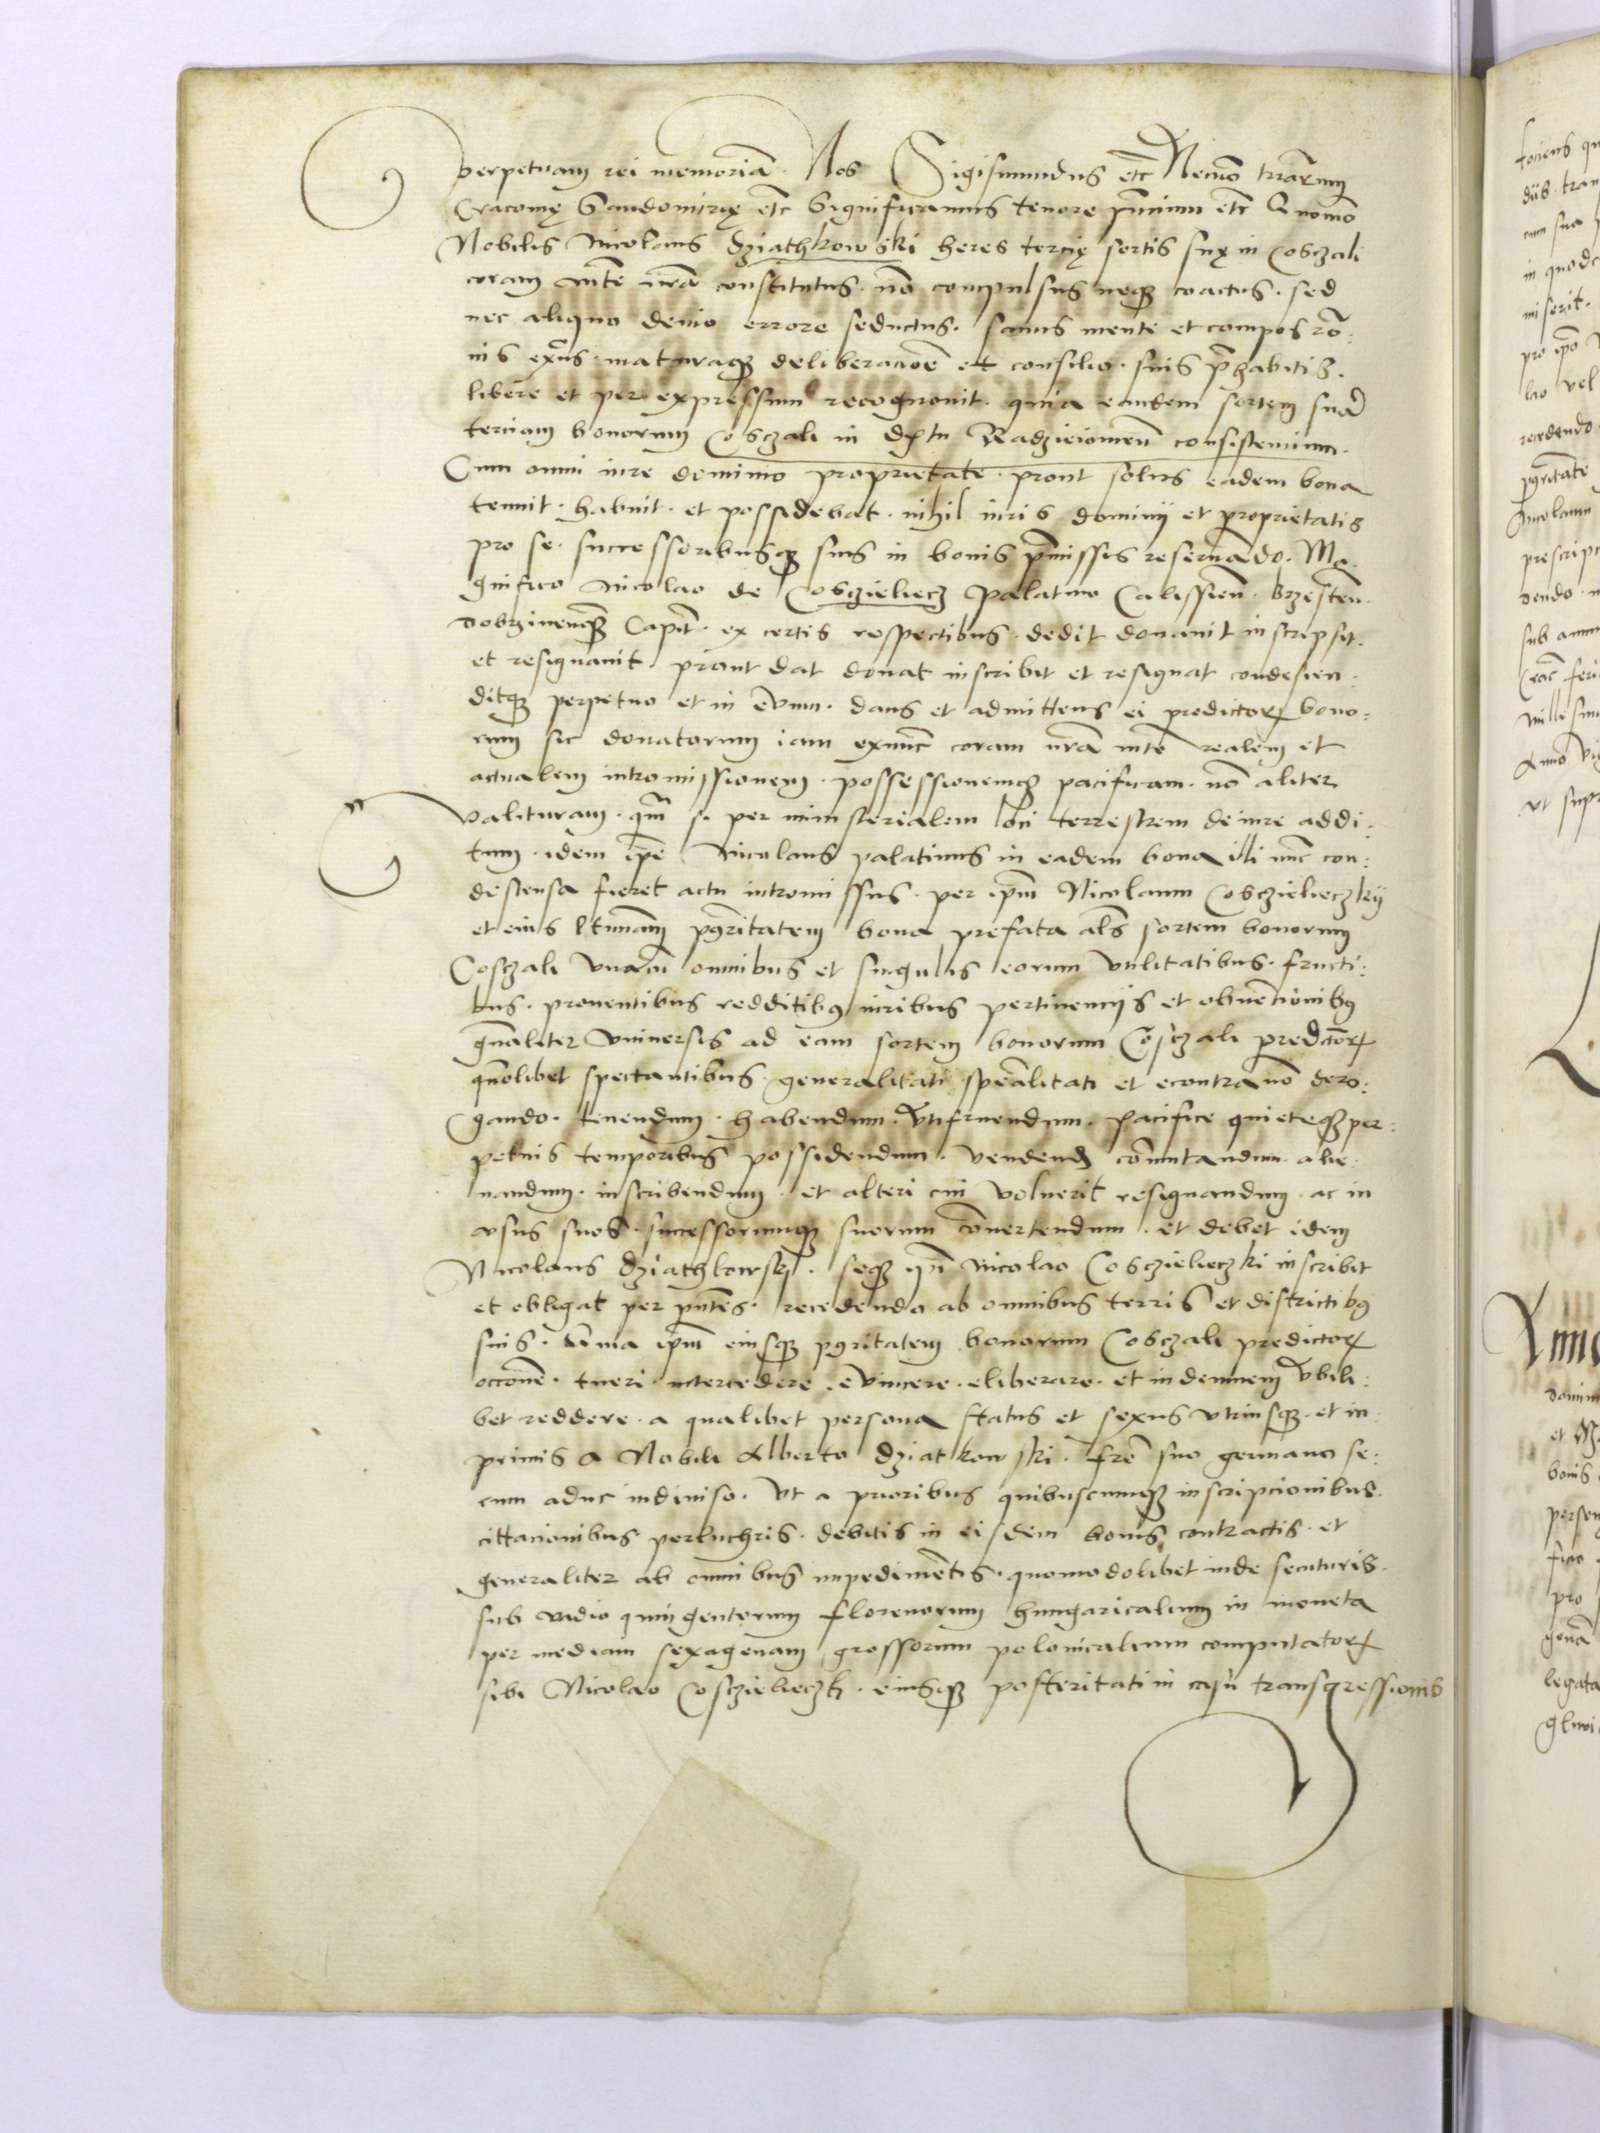 perpetuam rei memoriã. Nos Sigismundus etc̃ Necnõ trrãrum
Cracouię Sandomirię etc̃ Significamus tenore pñcium etc̃ Quomõ
Nobilis Nicolaus Dziathkowski heres tercię sortis suę in Cosczali
coram mtẽ nr̃a constitutus. nõ compulsus neq3 coactus. sed
nec aliquo deuio errore seductus. sanus mente et compos rõ:
nis exñs. maturaq3 deliberacioẽ et consilio. suis p̃habitis.
libere et per expressum recognouit. quia eandem sortem suã
terciam bonorum Cosczali in dr̃ctu Radzieiouieñ consistencium.
Cum omni iure dominio proprietate. prout solus eadem bona
tenuit. habuit. et possidebat. nihil iuris dominij et proprietatis
pro se. successoribusq3 suis in bonis p̃missis reseruãdo. Ma:
gnifico Nicolao de Cosczieliecz Palatino Calissieñ. Brzesteñ.
dobrzineñq3 Capit̃. ex certis respectibus. dedit donauit inscripsit.
et resignauit. prout dat donat inscribit et resignat condescen:
ditq3 perpetuo et in ẽuum. dans et admittens ei predictor̃ bono:
rum sic donatorum iam exnũc coram nr̃a mtẽ realem et
actualem intromissionem. possessionemq3 pacificam. nõ aliter
valituram. qm̃ si per ministerialem loci terrestrem de iure addi:
tum. idem ip̃e Nicolaus palatinus in eadem bona illi nũc con:
descensa fieret actu intromissus. per ip̃m Nicolaum Cosczielieczkij
et eius ltimam̃ pr̃itatem bona prefata als̃ sortem bonorum
Cosczali vnacũ omnibus et singulis eorum vtilitatibus. fructi:
bus. prouentibus redditib9 iuribus pertinencijs et obuẽtionib9
gñaliter vniuersis ad eam sortem bonorum Cosczali predictor̃
quolibet spectantibus. generalitati spẽalitati et econtra nõ dero:
gando. tenendum. habendum. vtifruendum. pacifice quieteq3 per:
petuis temporibus possidendum. vendend̃ cõmutandum. alie:
nandum. inscribendum. et alteri cui voluerit resignandum. ac in
vsus suos. successorumq3 suorum cõuertendum. et debet idem
Nicolaus Dziathkowski. seq3 ip̃i Nicolao Cosczielieczki inscribit
et obligat per pñtes. recedendo ab omnibus terris et districtib9
suis. ip̃m eiusq3 pr̃itatem bonorum Cosczali predictor̃
occõne. tueri. intercedere. euincere. eliberare. et indemnem vbili:
bet reddere. a qualibet persona status et sexus vtriusq3. et in:
primis a Nobili Alberto Dziatkowski. frẽ suo germano se:
cum aduc indiuiso. vt a prioribus quibuscumq3 inscripcionibus.
cittacionibus perluchris. debitis in eisdem bonis contractis. et
generaliter ab omnibus impedimẽtis. quomodolibet inde secuturis.
sub vadio quingentorum florenorum hungaricalium in moneta
per mediam sexagenam grossorum polonicalium computator̃
sibi Nicolao Cosczielieczki. eiusq3 posteritati in casu transgressionis